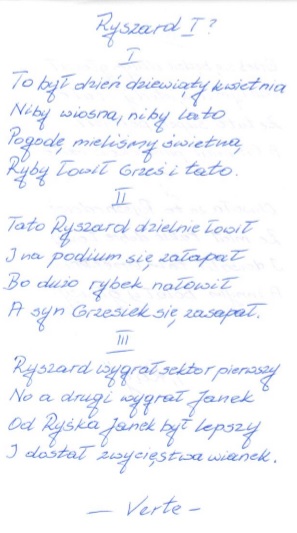 Ryszard I?
I
To był dzień dziewiąty kwietnia
Niby wiosna, niby lato
Pogodę mieliśmy świetną,
Ryby łowił Grześ i tato.
II
Tato Ryszard dzielnie łowił
I na podium się załapał
Bo dużo rybek nałowił
A syn Grzesiek się zasapał.
III
Ryszard wygrał sektor pierwszy
No a drugi wygrał Janek
Od Ryśka Janek był lepszy
I dostał zwycięstwa wianek.
— Verte –